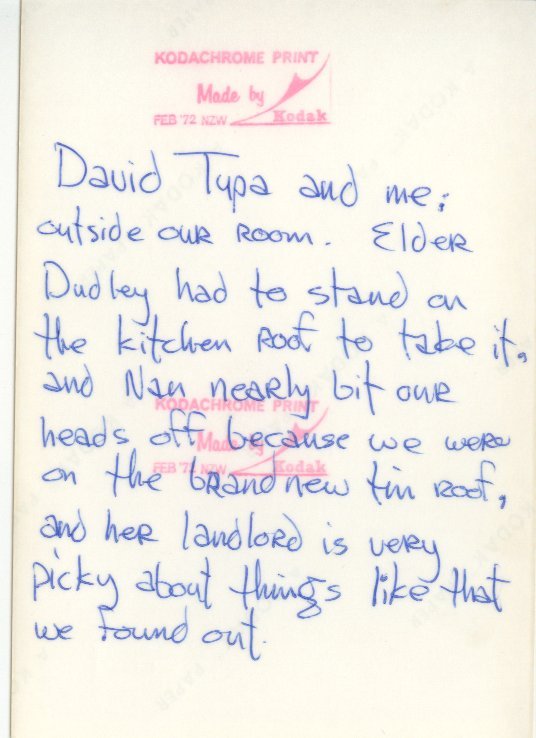 KODACHROME PRINT
Made by
FEB '72 NZW Kodak
David Tupa and me;
outside our room. Elder
Dudley had to stand on
the kitchen roof to take it,
and Nan nearly bit our
KODACHROME PRINT
heads off because we were
Made by
FEB '72 NZW Kodak
on the brand new tin roof,
and her landlord is very
picky about things like that
we found out.